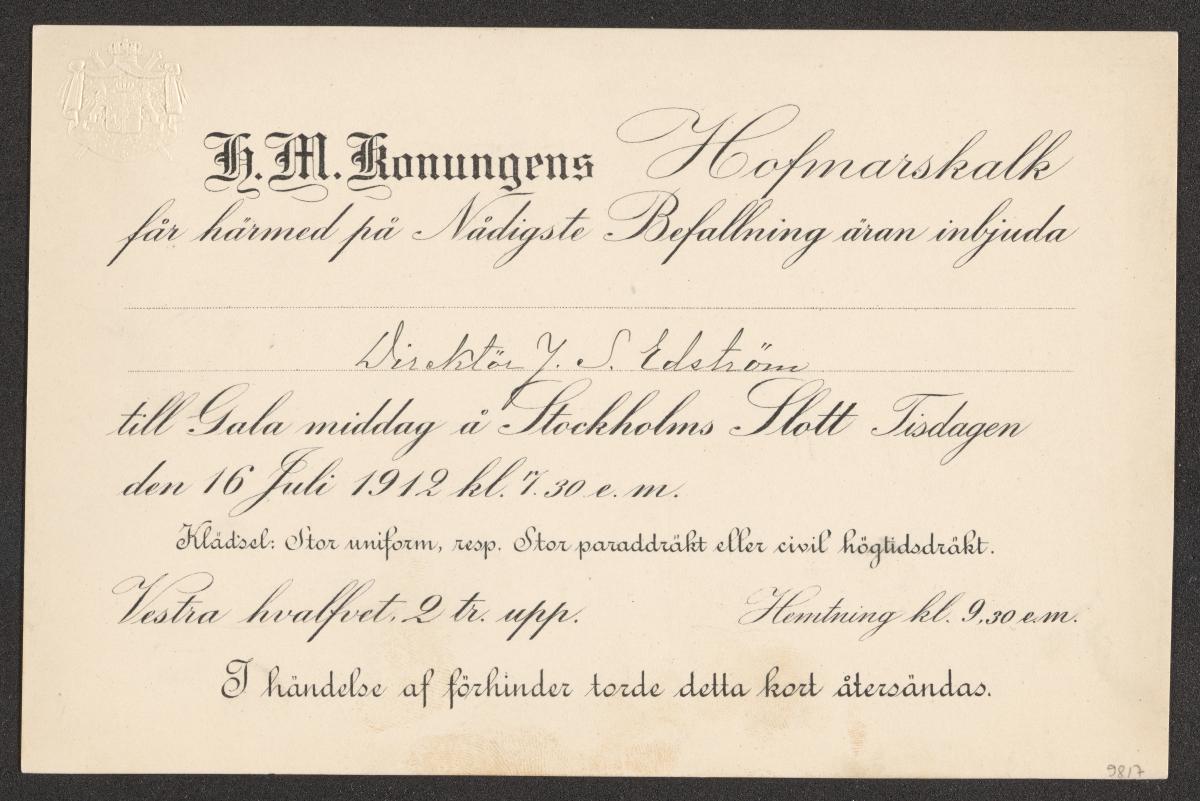 H. M. Konungens Hofmarskalk
får härmed på Nådigste Befallning äran inbjuda
Direktör J. S. Edström
till Gala middag å Stockholms Slott Tisdagen
den 16 Juli 1912 kl. 7.30 e.m.
Klädsel: Stor uniform, resp. Stor paraddräkt eller civil högtidsdräkt.
Vestra hvalfvet, 2 tr. upp. Hemtning kl. 9,30 e.m.
I händelse af förhinder torde detta kort återsändas.
9817